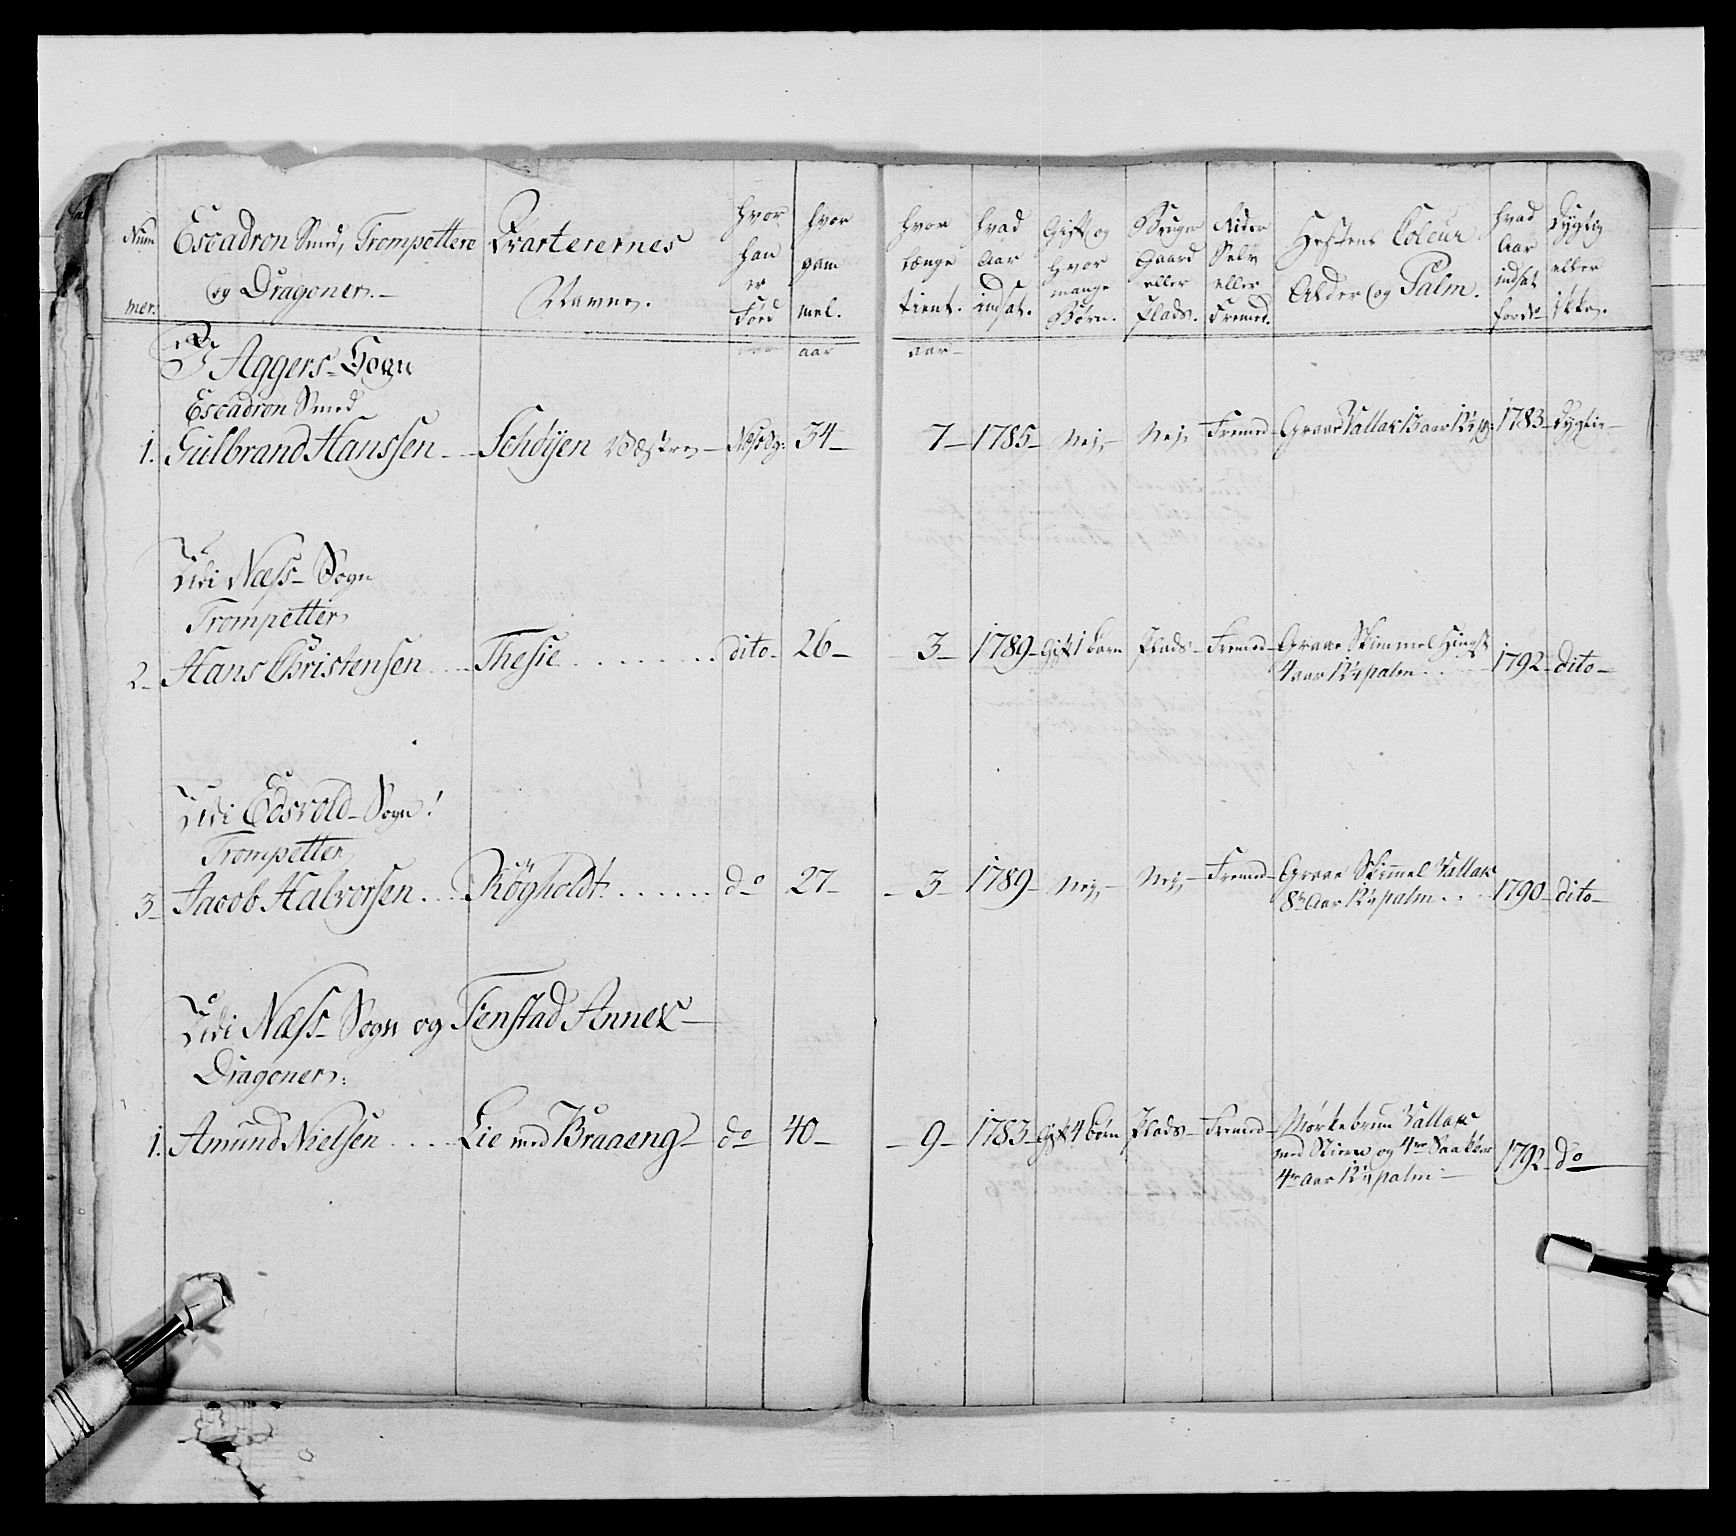 Num
mer.
Escadron Smed, Trompettere
og Dragoner.
Qvarterernes
Navne.
hvor
han
er
Föed
hvor
gam
mel.
hvor
længe
tient.
hvad
Aar
indsat.
Gift og
hvor
mange
Börn.
Bruger
Gaard
eller
Plads.
Rider
Selv
eller
Fremed.
Hestens Coleur
Alder og Palm.
hvad
Aar
indsat
Dygtig
eller
ikke.
aar
aar
I Aggers Sogn
Escadron Smed
1. Gulbrand Hanssen Schöyen Væstre 34 7 1785 Nej Nej Fremed 1783 Dygtig
Udi Næss Sogn
Trompetter
2 Hans Christensen Thesie dito 26 3 1789 Gift 1 barn Plads Fremed Graae Skimmel Hingst
4 aar 12½ palm 1792 dito
Udi Edsvold Sogn
Trompetter
3 Jacob Halvorsen Rögholdt do 27 3 1789 Nej Nej Fremed Graae Skimmel Vallak
8te Aar 12½ palm 1790 dito
Udi Næss Sogn og Fenstad Annex
Dragoner:
1. Amund Nielsen Lie med Braaeng do 40 9 1783 Gift 4 börn Plads Fremed Mörkebrun Vallak
med Stierne og
4re aar 12½ palm 1792 do